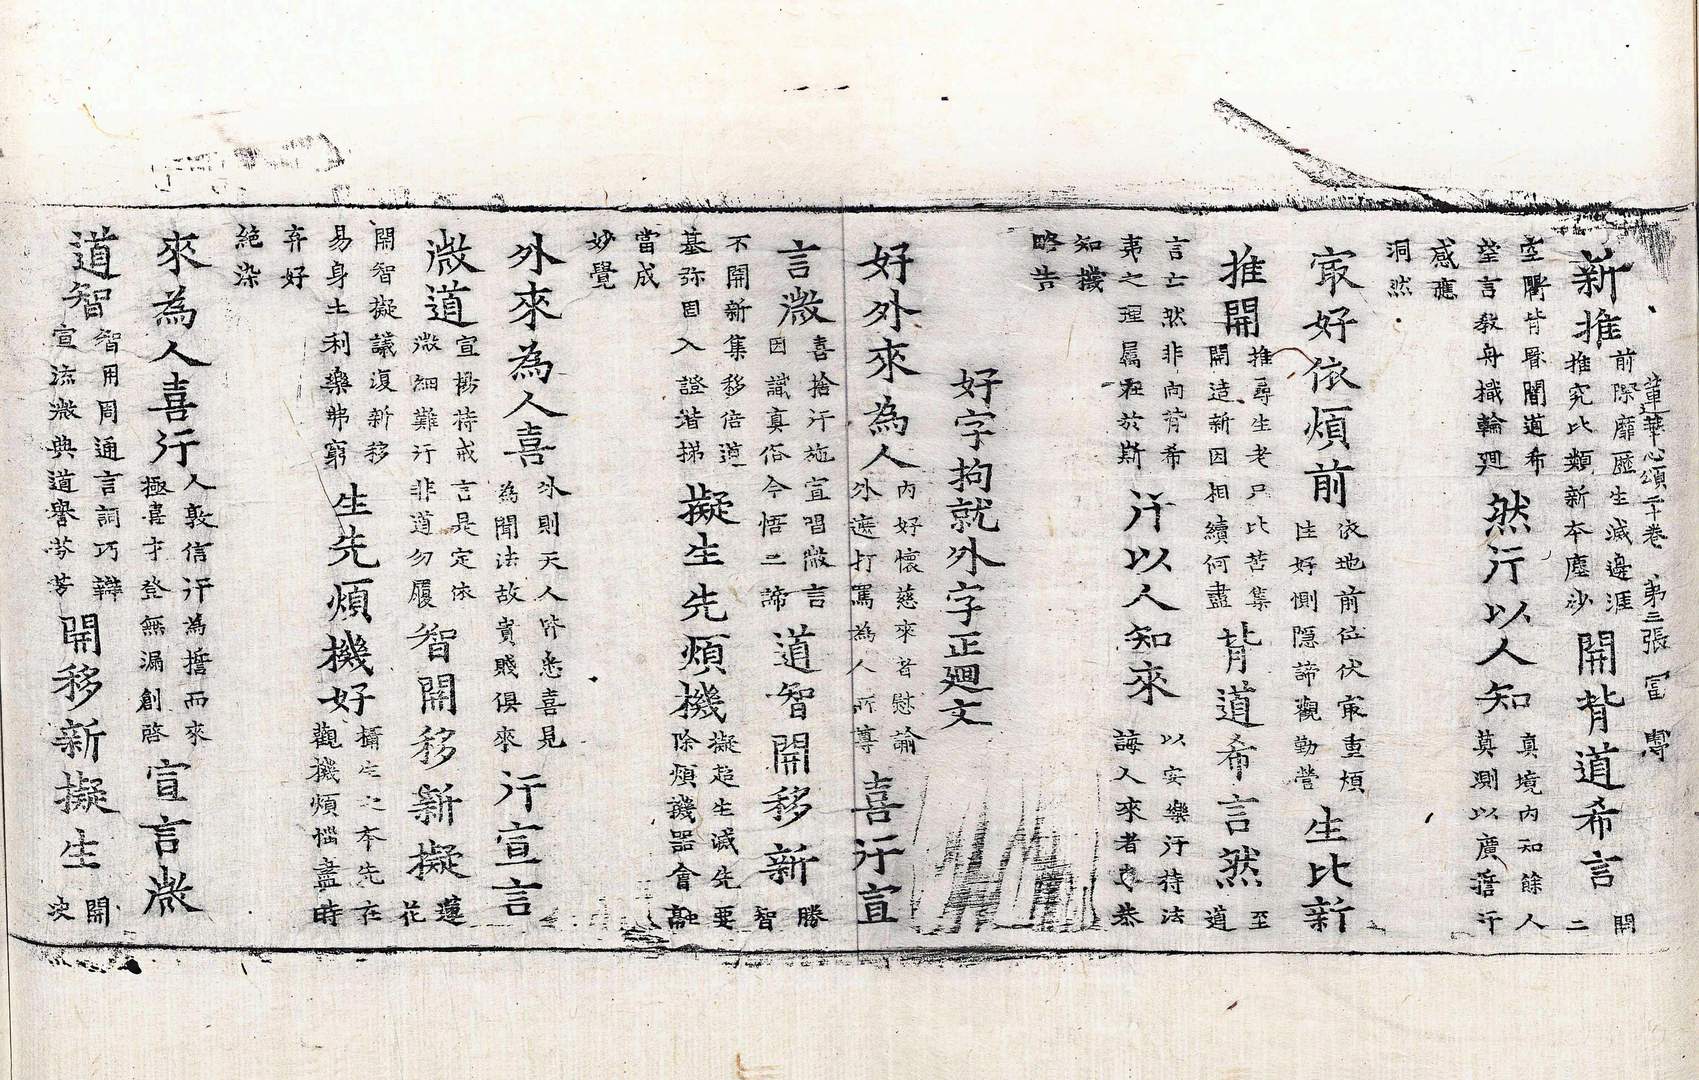 蓮華心頌二十卷 第三張 冨 専
新推 前際靡區生滅邊涯 推究比類新本塵沙 開背道希言 開二
空關背厭聞道希 筌言教舟檝輪廻 然行以人知 真境內知餘人 莫測以廣誓行
感應
洞然
㝡好依煩前 依地前位伏㝡重煩 性好惻隱諦觀勤營 生比新
推開 推尋生老只比苦集 開造新因相續何盡 背道希言然 至道
言亡然非向背希 夷之理屬在於斯 行以人知來 以安樂行持法 誨人來者必恭
知機
略告
好字拘就外字正廻文
好外來為人 內好懷慈來者慰諭 外遮打罵為人所尊 喜行宣
言微 喜捨行施宣唱微言 因識真俗今悟二諦 道智開移新 勝智
不開新集移倍道 基弥固入證潜梯 擬生先煩機 擬起生滅先要 除煩機器會融
當成
妙覺
外來為人喜 外則天人皆悉喜見 為聞法故貴賤俱來 行宣言
微道 宣揚持戒言是定依 微細難行非道勿履 智開移新擬 蓮花
開智擬議復新移 易身土利樂弗窮 生先煩機好 攝生之本先在 觀機煩惱盡時
弃好
絶染
來為人喜行 人敦信行為誓而來 極喜才登無漏創啓 宣言微
道智 智用周通言詞巧辯 宣流微典道譽芬芳 開移新擬生 開次